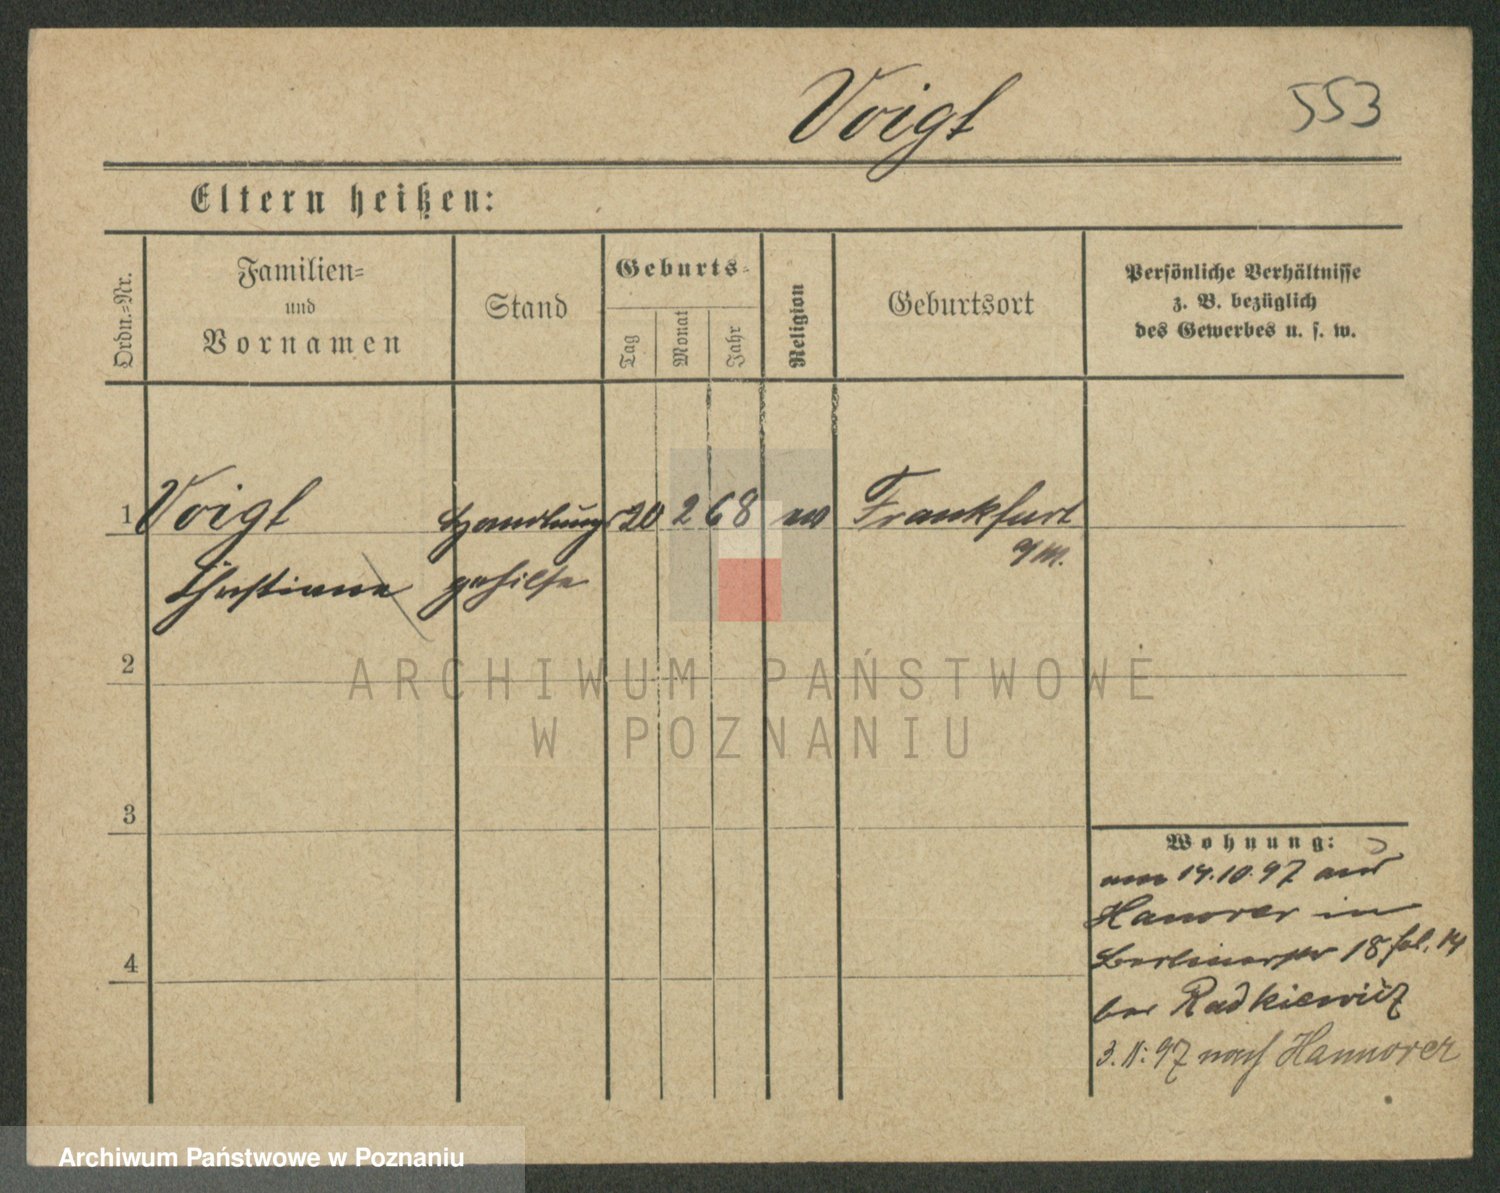 Voigt
553
Eltern heißen:
Ordn.-Nr.
Familien-
und
Vornamen
Stand
Geburts-
Tag
Monat
Jahr
Religion
Geburtsort
Persönliche Verhältnisse
z. B. bezüglich
des Gewerbes u. s. w.
1 Voigt Handlungs 20 2 68 Frankfurt
a/M.
Christiane gehilfe
2
ARCHIWUM PAŃSTWOWE
W POZNANIU
3
Wohnung:
am 14.10.97 aus
Hanover in
Berlinerstr 18 fol. 14
bei Radkiewicz
3.11.97 nach Hannover
4
Archiwum Państwowe w Poznaniu